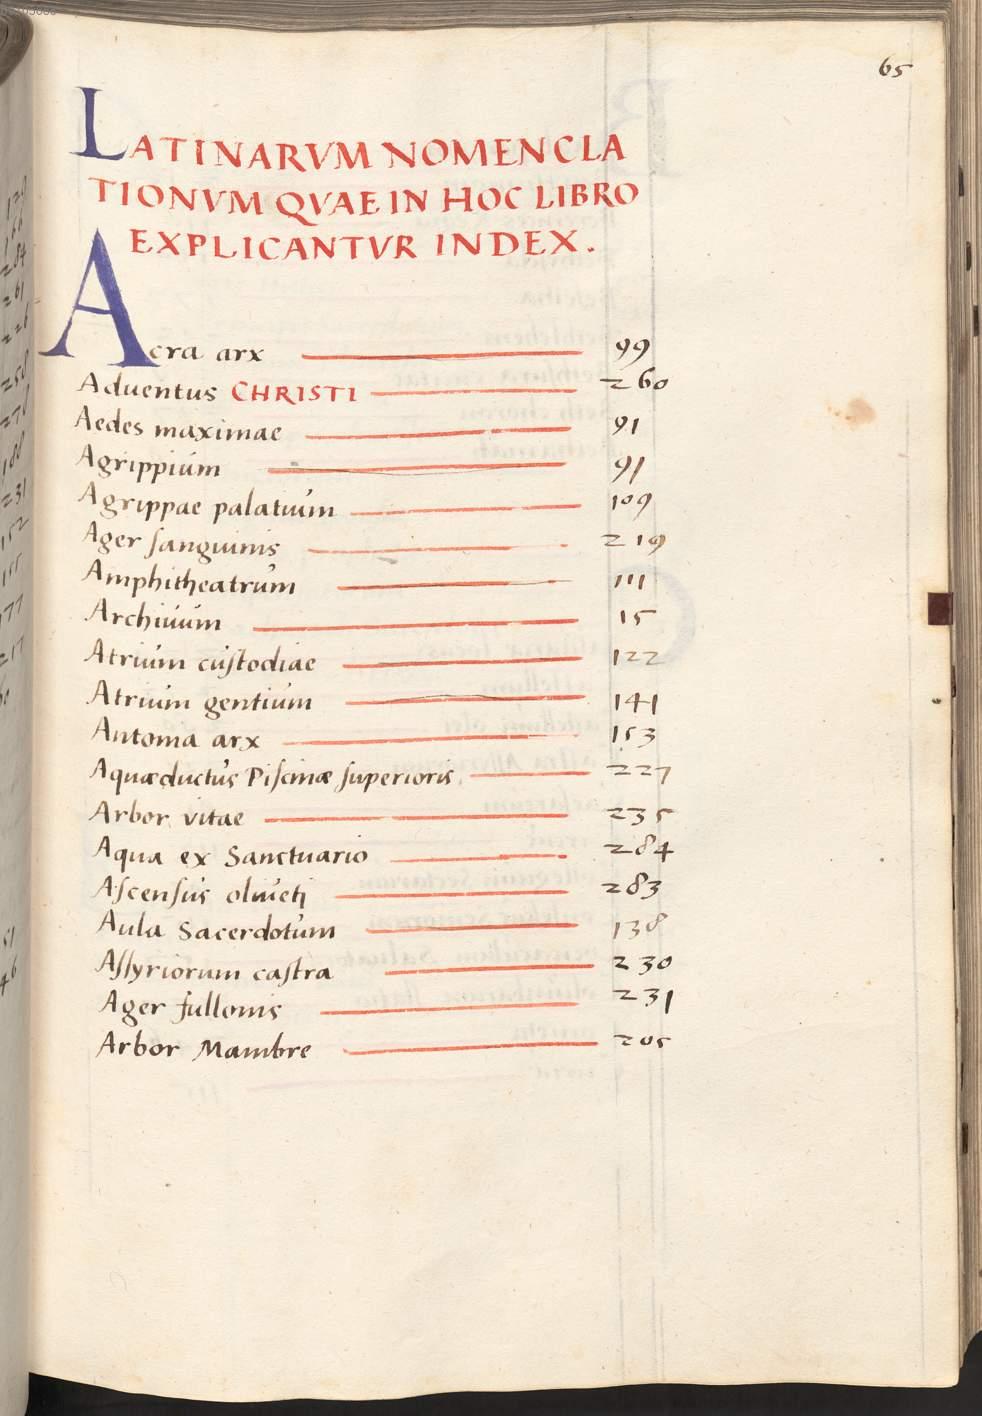 65
LATINARVM NOMENCLA
TIONVM QVAE IN HOC LIBRO
EXPLICANTVR INDEX.
Acra arx 99
Aduentus CHRISTI 260
Aedes maximae 91
Agrippium 91
Agrippae palatium 109
Ager ſanguinis 219
Amphitheatrum 111
Archiuum 15
Atrium cuſtodiae 122
Atrium gentium 141
Antonia arx 153
Aquæductus Piſcinæ ſuperioris 227
Arbor vitae 235
Aqua ex Sanctuario 284
Aſcenſus oliueti 283
Aula Sacerdotum 138
Aſſyriorum caſtra 230
Ager fullonis 231
Arbor Mambre 205